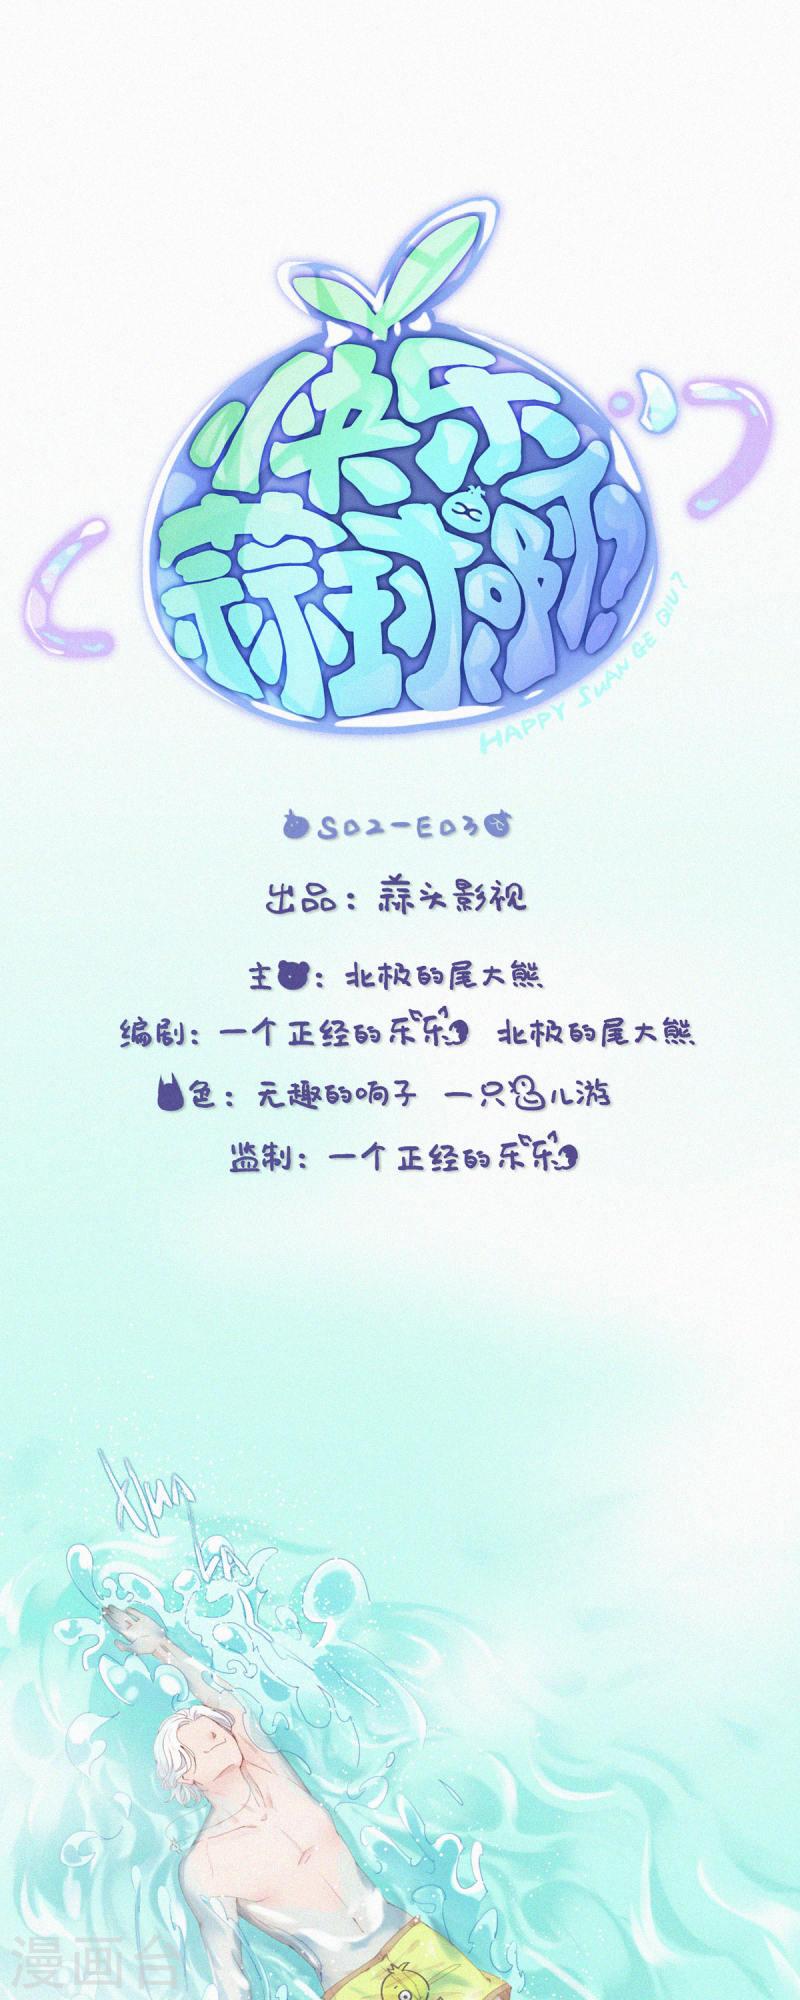 快乐
蒜球啊!
HAPPY SUAN GE QIU?
S02-E03
出品：蒜头影视
主：北极的尾大熊
编剧：一个正经的乐乐 北极的尾大熊
色：无趣的响子 一只鸟儿游
监制：一个正经的乐乐
XIUA
LA
漫画台